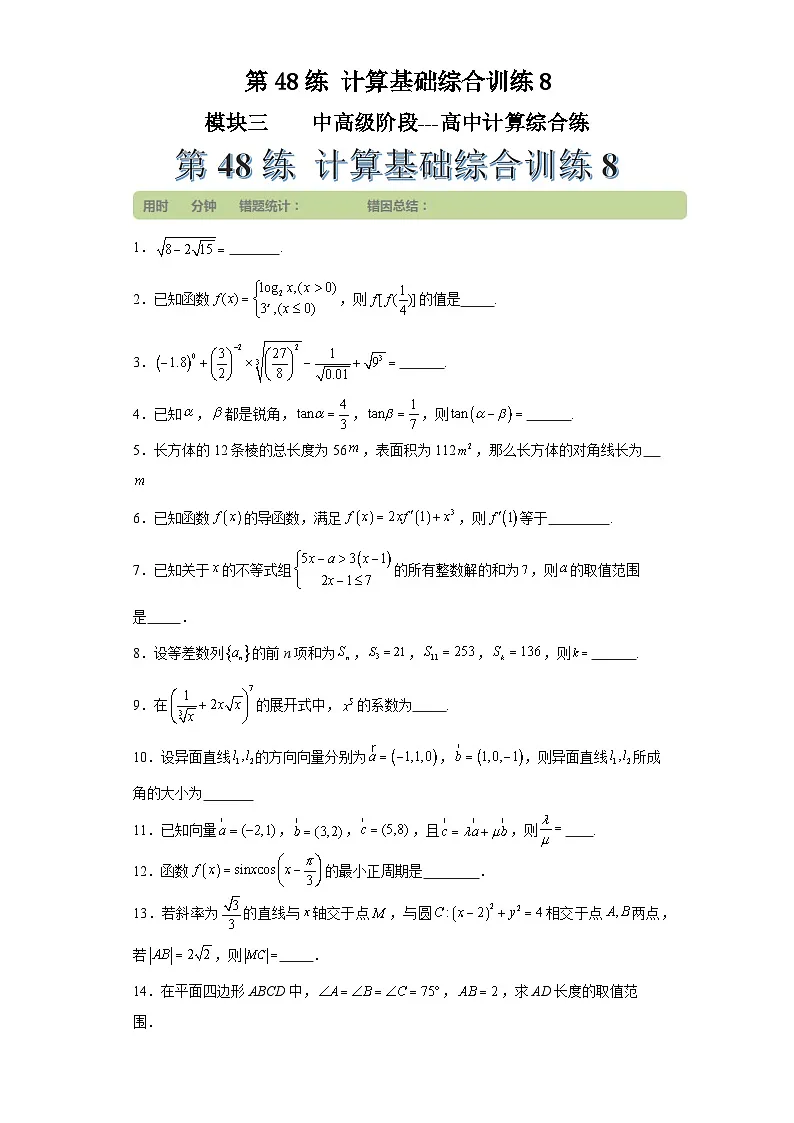 第 48 练 计算基础综合训练 8
模块三 中高级阶段---高中计算综合练
第 48 练 计算基础综合训练 8
用时 分钟 错题统计： 错因总结：
1．$\sqrt{8-2\sqrt{15}}=$ ______.
2．已知函数 $f(x)=\begin{cases}\log_2 x,(x>0)\\3^x,(x\le 0)\end{cases}$，则 $f[f(\frac{1}{4})]$ 的值是____.
3．$(-1.8)^0+\left(\frac{3}{2}\right)^{-2}\times\sqrt[3]{\left(\frac{27}{8}\right)^2}-\frac{1}{\sqrt{0.01}}+\sqrt{9^3}=$ ______.
4．已知 $\alpha$，$\beta$ 都是锐角，$\tan\alpha=\frac{4}{3}$，$\tan\beta=\frac{1}{7}$，则 $\tan(\alpha-\beta)=$ ______.
5．长方体的 12 条棱的总长度为 56 $m$，表面积为 112 $m^2$，那么长方体的对角线长为__
$m$
6．已知函数 $f(x)$ 的导函数，满足 $f(x)=2xf'(1)+x^3$，则 $f'(1)$ 等于________.
7．已知关于 $x$ 的不等式组 $\begin{cases}5x-a>3(x-1)\\2x-1\le 7\end{cases}$ 的所有整数解的和为 $7$，则 $a$ 的取值范围
是____．
8．设等差数列 $\{a_n\}$ 的前 n 项和为 $S_n$，$S_3=21$，，$S_{11}=253$，，$S_k=136$，，则 $k=$ ______.
9．在 $\left(\frac{1}{\sqrt[3]{x}}+2x\sqrt{x}\right)^7$ 的展开式中，$x^5$ 的系数为____.
10．设异面直线 $l_1,l_2$ 的方向向量分别为 $\overset{r}{a}=(-1,1,0)$，$\overset{'}{b}=(1,0,-1)$，则异面直线 $l_1,l_2$ 所成
角的大小为______
11．已知向量 $\overset{'}{a}=(-2,1)$，$\overset{'}{b}=(3,2)$，，$\overset{'}{c}=(5,8)$，且 $\overset{'}{c}=\lambda\overset{'}{a}+\mu\overset{'}{b}$，则 $\frac{\lambda}{\mu}=$ ____.
12．函数 $f(x)=\sin x\cos\left(x-\frac{\pi}{3}\right)$ 的最小正周期是_______．
13．若斜率为 $\frac{\sqrt{3}}{3}$ 的直线与 $x$ 轴交于点 $M$，与圆 $C:(x-2)^2+y^2=4$ 相交于点 $A,B$ 两点，
若 $|AB|=2\sqrt{2}$，则 $|MC|=$____．
14．在平面四边形 ABCD 中，$\angle A=\angle B=\angle C=75°$，$AB=2$，求 AD 长度的取值范
围．